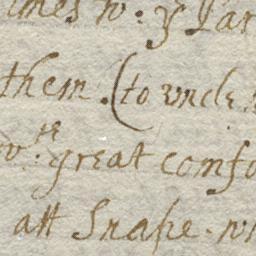 imes w: y Par
them. (to vncle
w:th great comfo
att Snape. wi